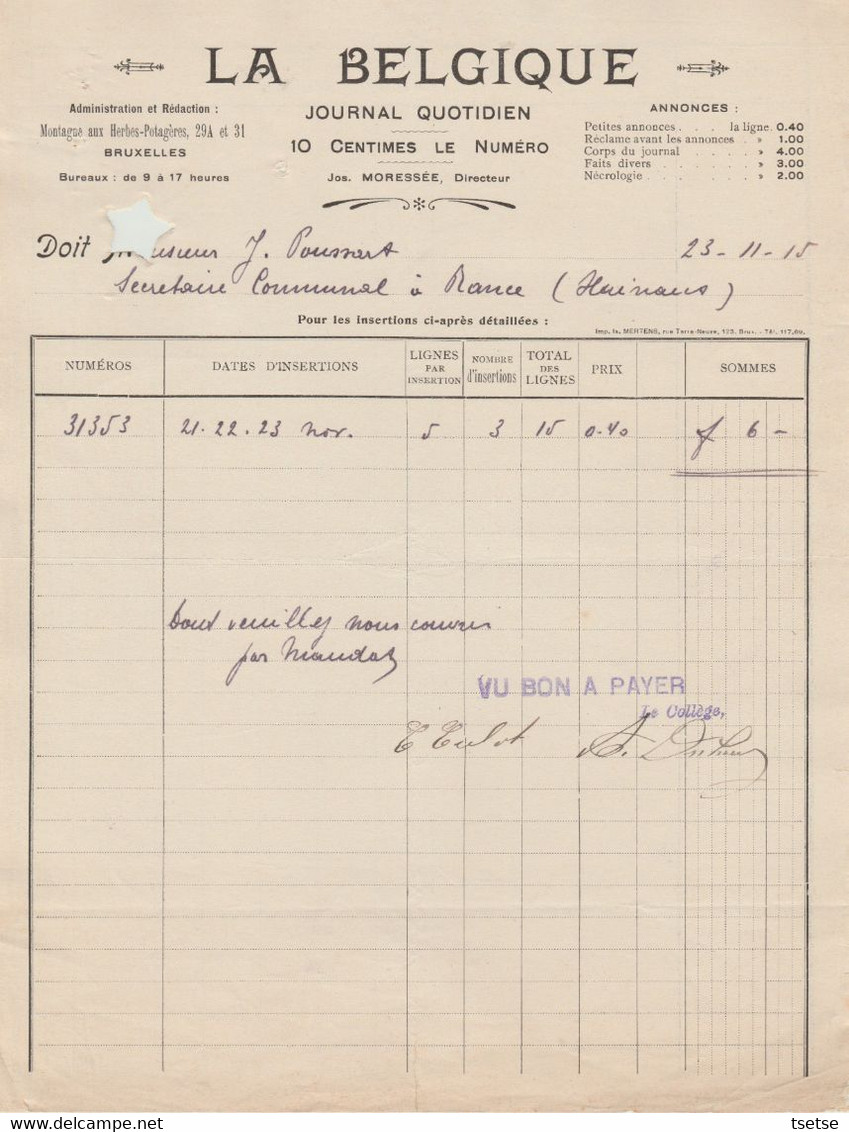 LA BELGIQUE
Administration et Rédaction :
Montagne aux Herbes-Potagères, 29A et 31
BRUXELLES
Bureaux : de 9 à 17 heures
JOURNAL QUOTIDIEN
10 CENTIMES LE NUMÉRO
Jos. MORESSÉE, Directeur
ANNONCES :
Petites annonces . . . la ligne. 0.40
Réclame avant les annonces . » 1.00
Corps du journal . . . . . » 4.00
Faits divers . . . . . . . » 3.00
Nécrologie . . . . . . . . » 2.00
Doit Monsieur J. Poussart 23-11-15
Secretaire Communal à Rance (Hainaut)
Pour les insertions ci-après détaillées :
Imp. Is. MERTENS, rue Terre-Neuve, 123, Brux. - Tél. 117,69.
NUMÉROS DATES D'INSERTIONS LIGNES PAR INSERTION NOMBRE d'insertions TOTAL DES LIGNES PRIX SOMMES
31353 21. 22. 23 Nov. 5 3 15 0.40 f 6 -
Dont veuillez nous couvrir
par Mandat
VU BON A PAYER
Le Collège,
tsetse